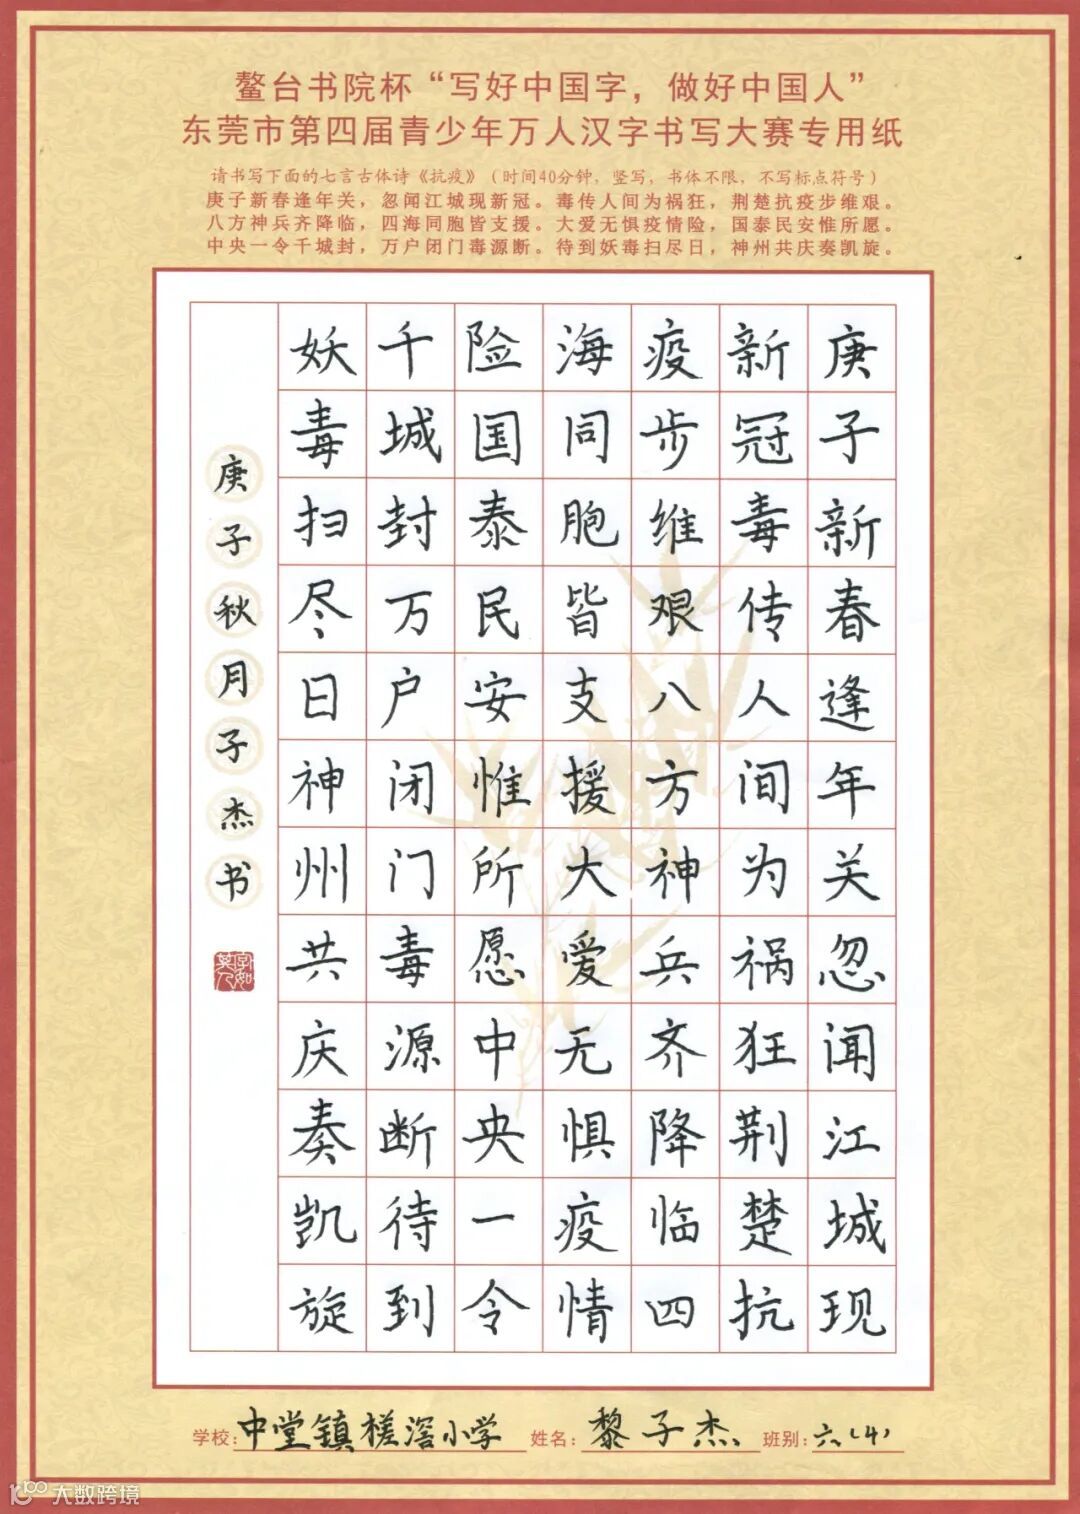 鳌台书院杯“写好中国字，做好中国人”
东莞市第四届青少年万人汉字书写大赛专用纸
请书写下面的七言古体诗《抗疫》（时间40分钟，竖写，书体不限，不写标点符号）
庚子新春逢年关，忽闻江城现新冠。毒传人间为祸狂，荆楚抗疫步维艰。
八方神兵齐降临，四海同胞皆支援。大爱无惧疫情险，国泰民安惟所愿。
中央一令千城封，万户闭门毒源断。待到妖毒扫尽日，神州共庆奏凯旋。
庚子新春逢年关忽闻江城现
新冠毒传人间为祸狂荆楚抗
疫步维艰八方神兵齐降临四
海同胞皆支援大爱无惧疫情
险国泰民安惟所愿中央一令
千城封万户闭门毒源断待到
妖毒扫尽日神州共庆奏凯旋
庚子秋月子杰书
字如其人
学校：中堂镇槎滘小学 姓名：黎子杰 班别：六（4）
大数跨境